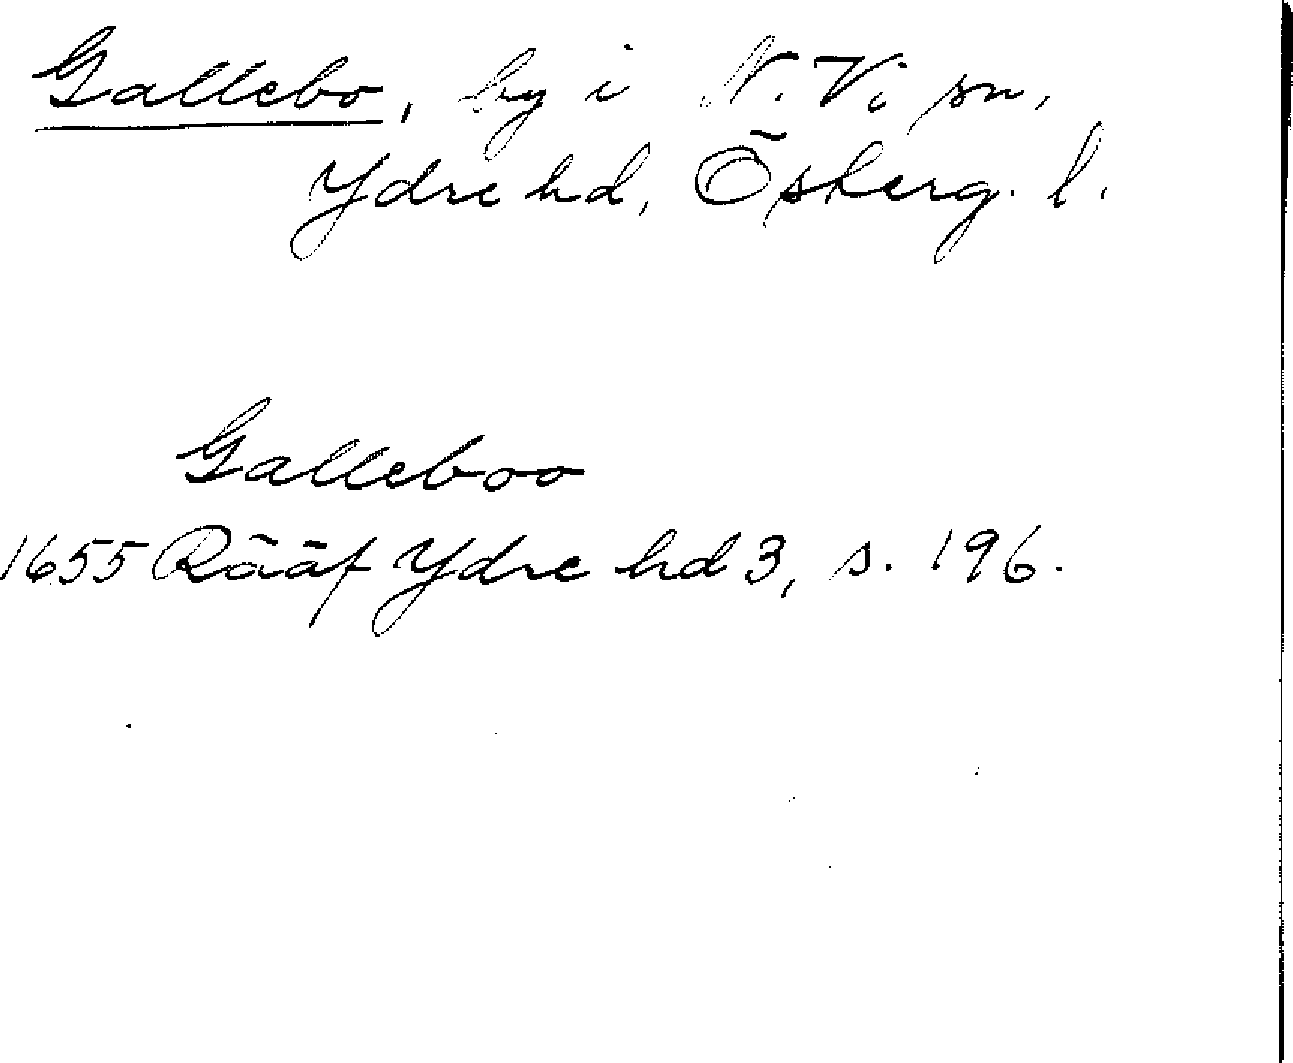 Gallebo, by i N. Vi sn,
Ydre hd, Östergl.
Galleboo
1655 Rääf Ydre hd 3, s. 196.